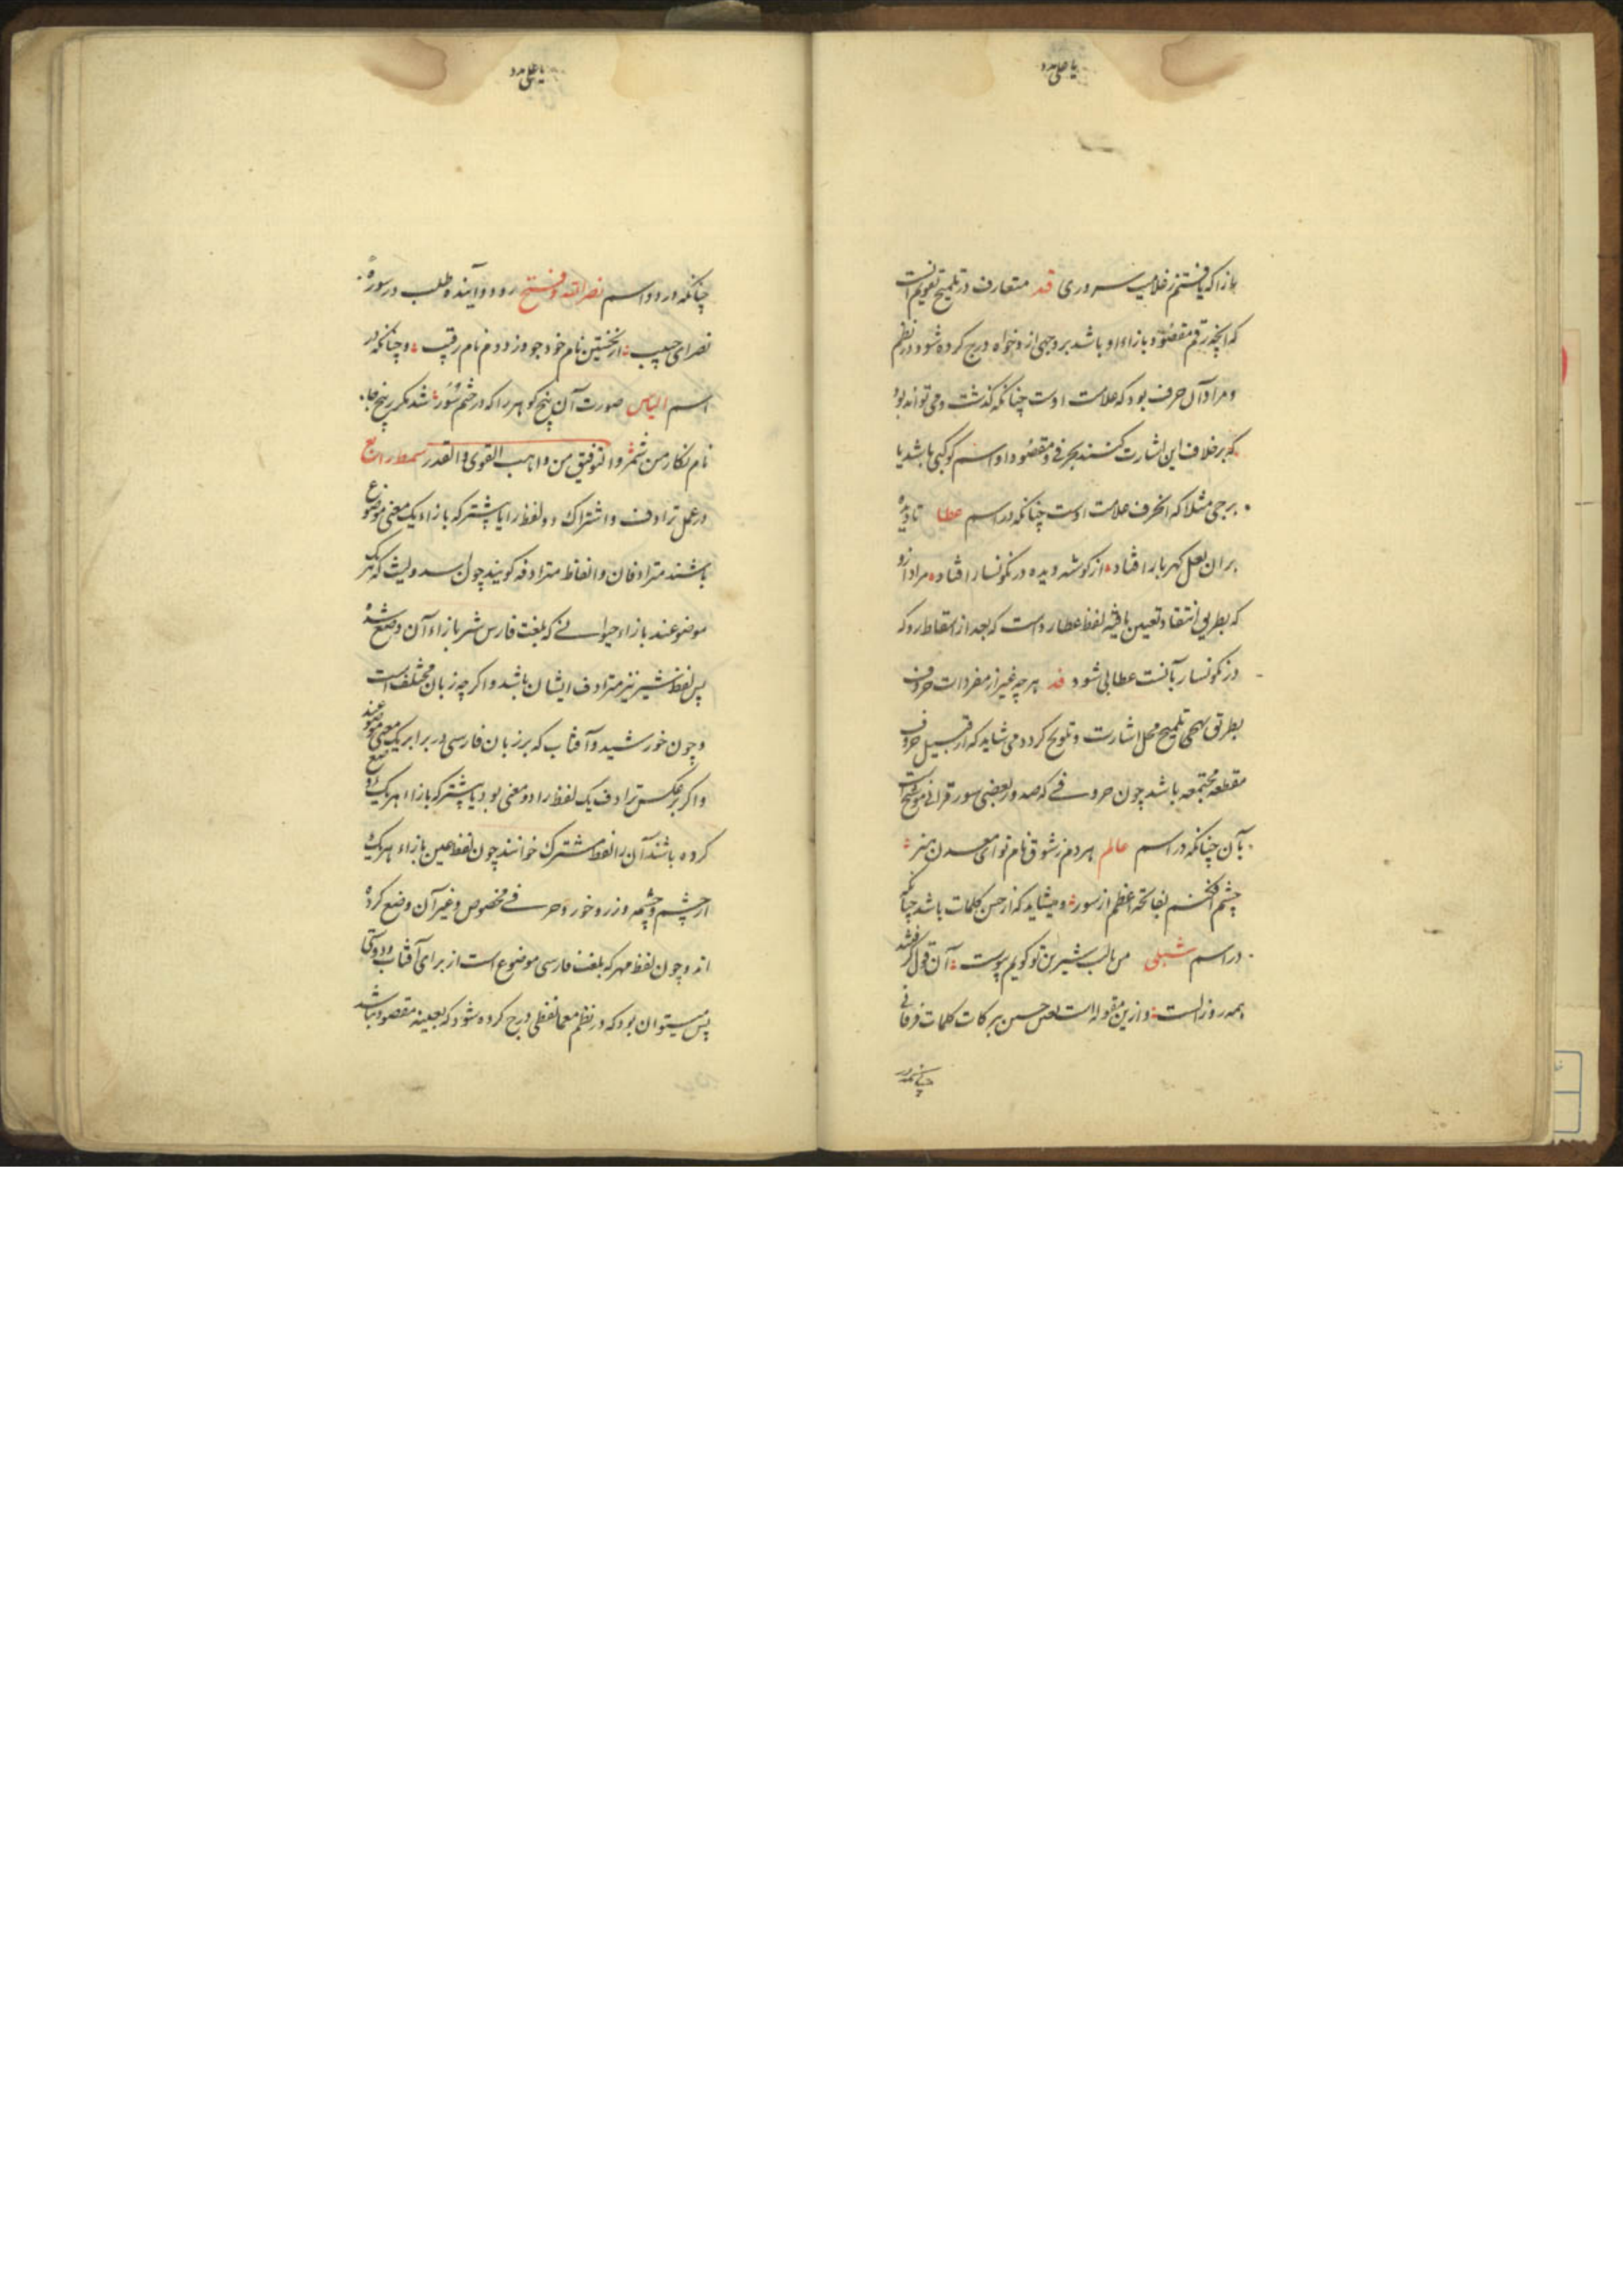 یا علی مدد
بازا که یافتم ز غلامیت سروری قد متعارف در تلمیح تقویم آنست
که آنچه رقم مقصود بازاء او باشد بر وجهی از وجواه درج کرده شود در نظم
و مراد آن حرف بود که علامت اوست چنانکه گذشت و می تواند بود
که بر خلاف این اشارت کنند بحرفی و مقصود او اسم کوکبی باشد یا
برجی مثلا که انحرف علامت اوست چنانکه در اسم عطا تا دیده
بران لعل کهربار افتاد از گوشه دیده در نگونسار افتاد مراد ازو
که بطریق انتقاد تعیین یافته لفظ عطارد است که بعد از اسقاط رد که
در نگونسار آنست عطا بی شود قد هرچه غیر از مفردات حروف
بطرق تهجی تلمیح محل اشارت و تلویح کردد می شاید که از قبیل حروف
مقطعه مجتمعه باشد چون حروفی که صدور بعضی سور قرآنی موشح است
بآن چنانکه در اسم عالم هر دم ز شوق نام تو ای معدن هنر
چشم افکنم بفاتحه اعظم از سور و میشاید که از جنس کلمات باشد چنانکه
در اسم شبلی من بالب شیرین تو گویم پیوست آن قول که
همه روز الست و ازین مقوله است بعض حسن برکات کلمات فرقانی
چنانکه در
یا علی مدد
چنانکه در دو اسم نصر الله و فتح رود و آیند و طلب در سوره
نصر ای حبیب از نخستین نام خود جو وز دوم نام رقیب و چنانکه در
اسم الیاس صورت آن پنج گوهر را که در ختم سور شد مکرر پنج جا
نام نگار من شمر و التوفیق من واهب القوی و القدر سمط رابع
در عمل ترادف و اشتراک دو لفظ را یا پشتر که بازاء یک معنی موضوع
باشند مترادفان و الفاظ مترادفه گویند چون اسد و لیث که هر یک
موضوعند بازاء حیوانی که بلغت فارس شیر بازاء آن وضع شده
پس لفظ شیر نیز مترادف ایشان باشد و اگر چه زبان مختلف است
و چون خورشید و آفتاب که بر زبان فارسی در برابر یک معنی موضوعند
و اگر بر عکس ترادف یک لفظ را دو معنی بود یا پشتر که بازاء هر یک وضع
کرده باشند آن را لفظ مشترک خوانند چون لفظ عین بازاء هر یک
از چشم و چشمه و زر و خور و حرفی مخصوص و غیر آن وضع کرده
اند و چون لفظ مهر که بلغت فارسی موضوع است از برای آفتاب و دوستی
پس میتوان بود که در نظم معما لفظی درج کرده شود که بعینه مقصود نباشد